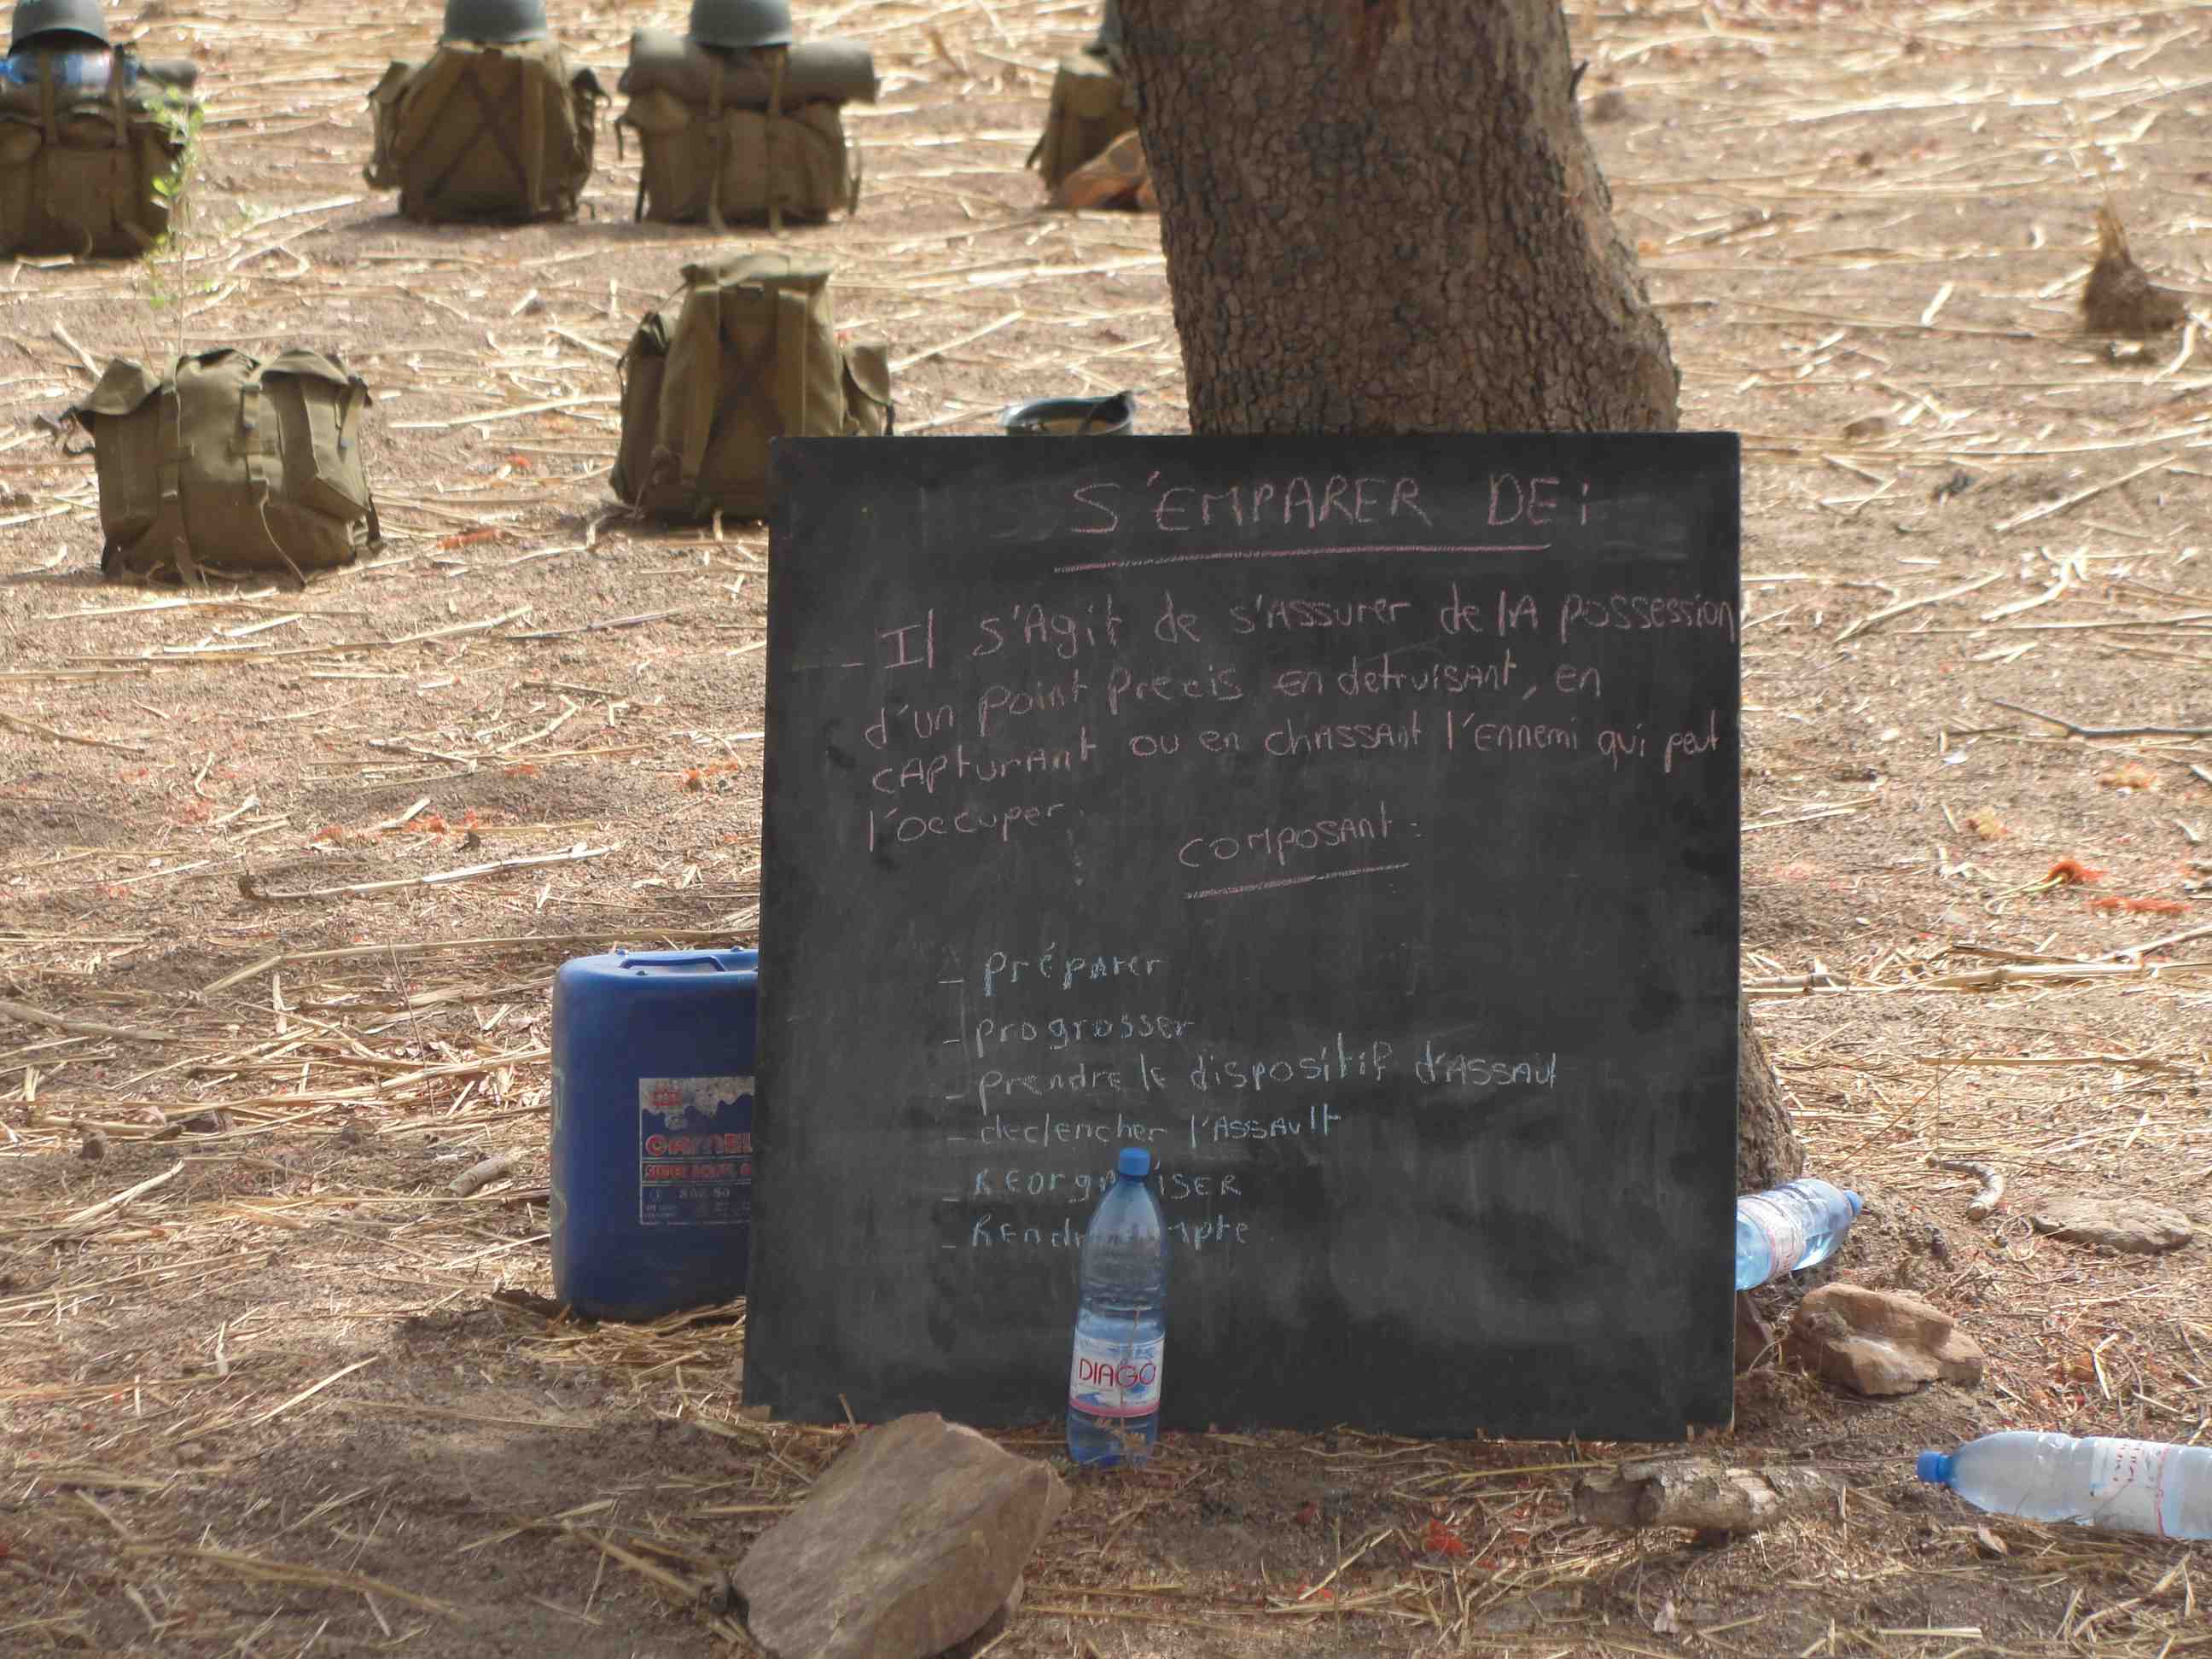 S'EMPARER DE:
- Il s'Agit de s'Assurer de lA possession
d'un point precis en detruisant, en
cApturAnt ou en chAssAnt l'Ennemi qui peut
l'occuper.
COMPOSAnt:
- Préparer
- progresser
- prendre le dispositif d'ASSAUt
- declencher l'ASSAUlt
- REorg iSER
- REndr mpte
CAMEL
DIAGO